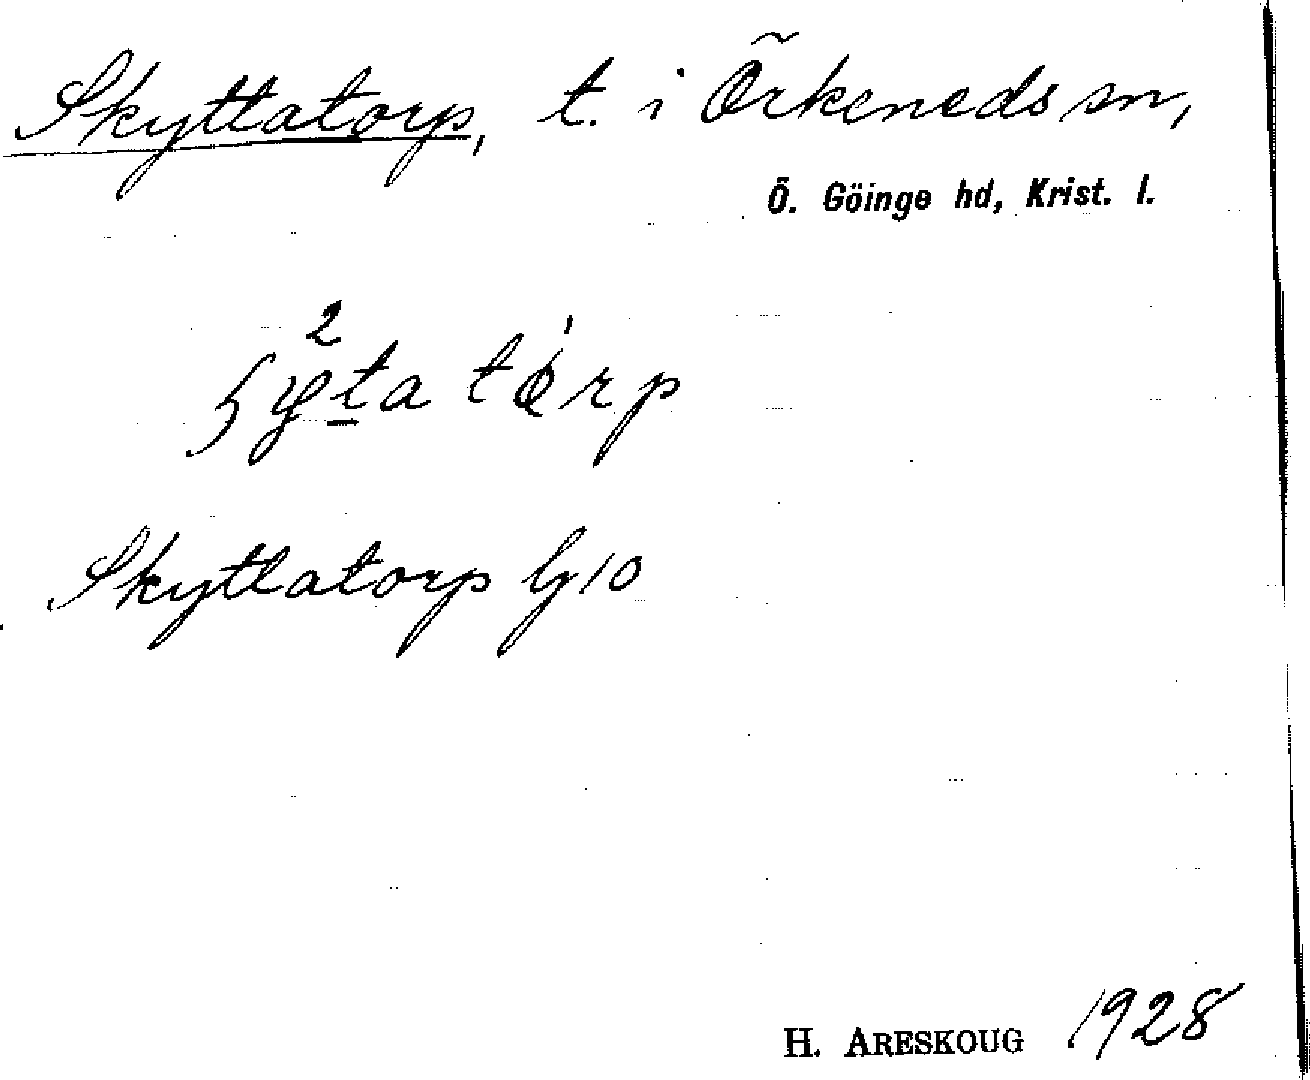 Skyttatorp, t. i Örkeneds sn,
Ö. Göinge hd, Krist. l.
Skyttatorp Gj10
H. ARESKOUG 1928